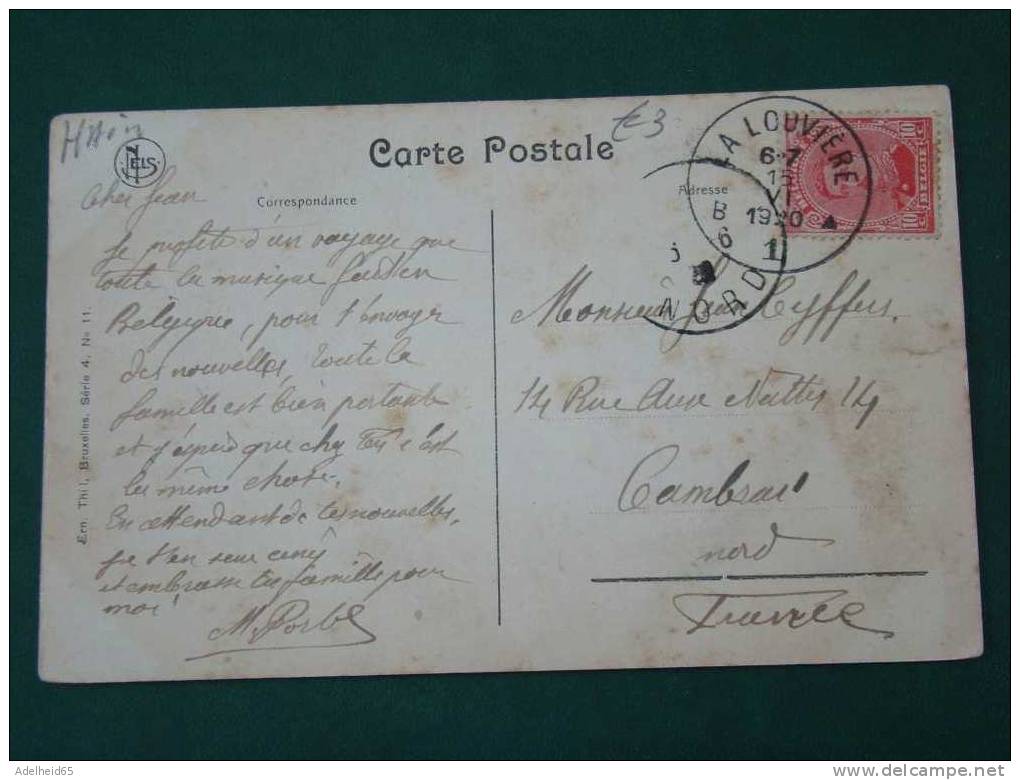 €3
NELS
Carte Postale
Correspondance
Adresse
LA LOUVIÈRE
6-7
15
VI
1920
1
B
6
NORD
10 BELGIË 10
Cher Jean
Je profite d'un voyage que
toute la musique fait en
Belgique, pour t'envoyer
des nouvelles, toute la
famille est bien portante
et j'espère que chez Toi c'est
la même chose.
En attendant de tes nouvelles,
je t'en serre cinq
et embrasse ta famille pour
moi
Monsieur Jean Cyffers,
14 Rue Aux Nattes 14
Cambrai
nord
France
Ern. Thil, Bruxelles. Série 4. No 11.
Adelheid65
delcampe.net